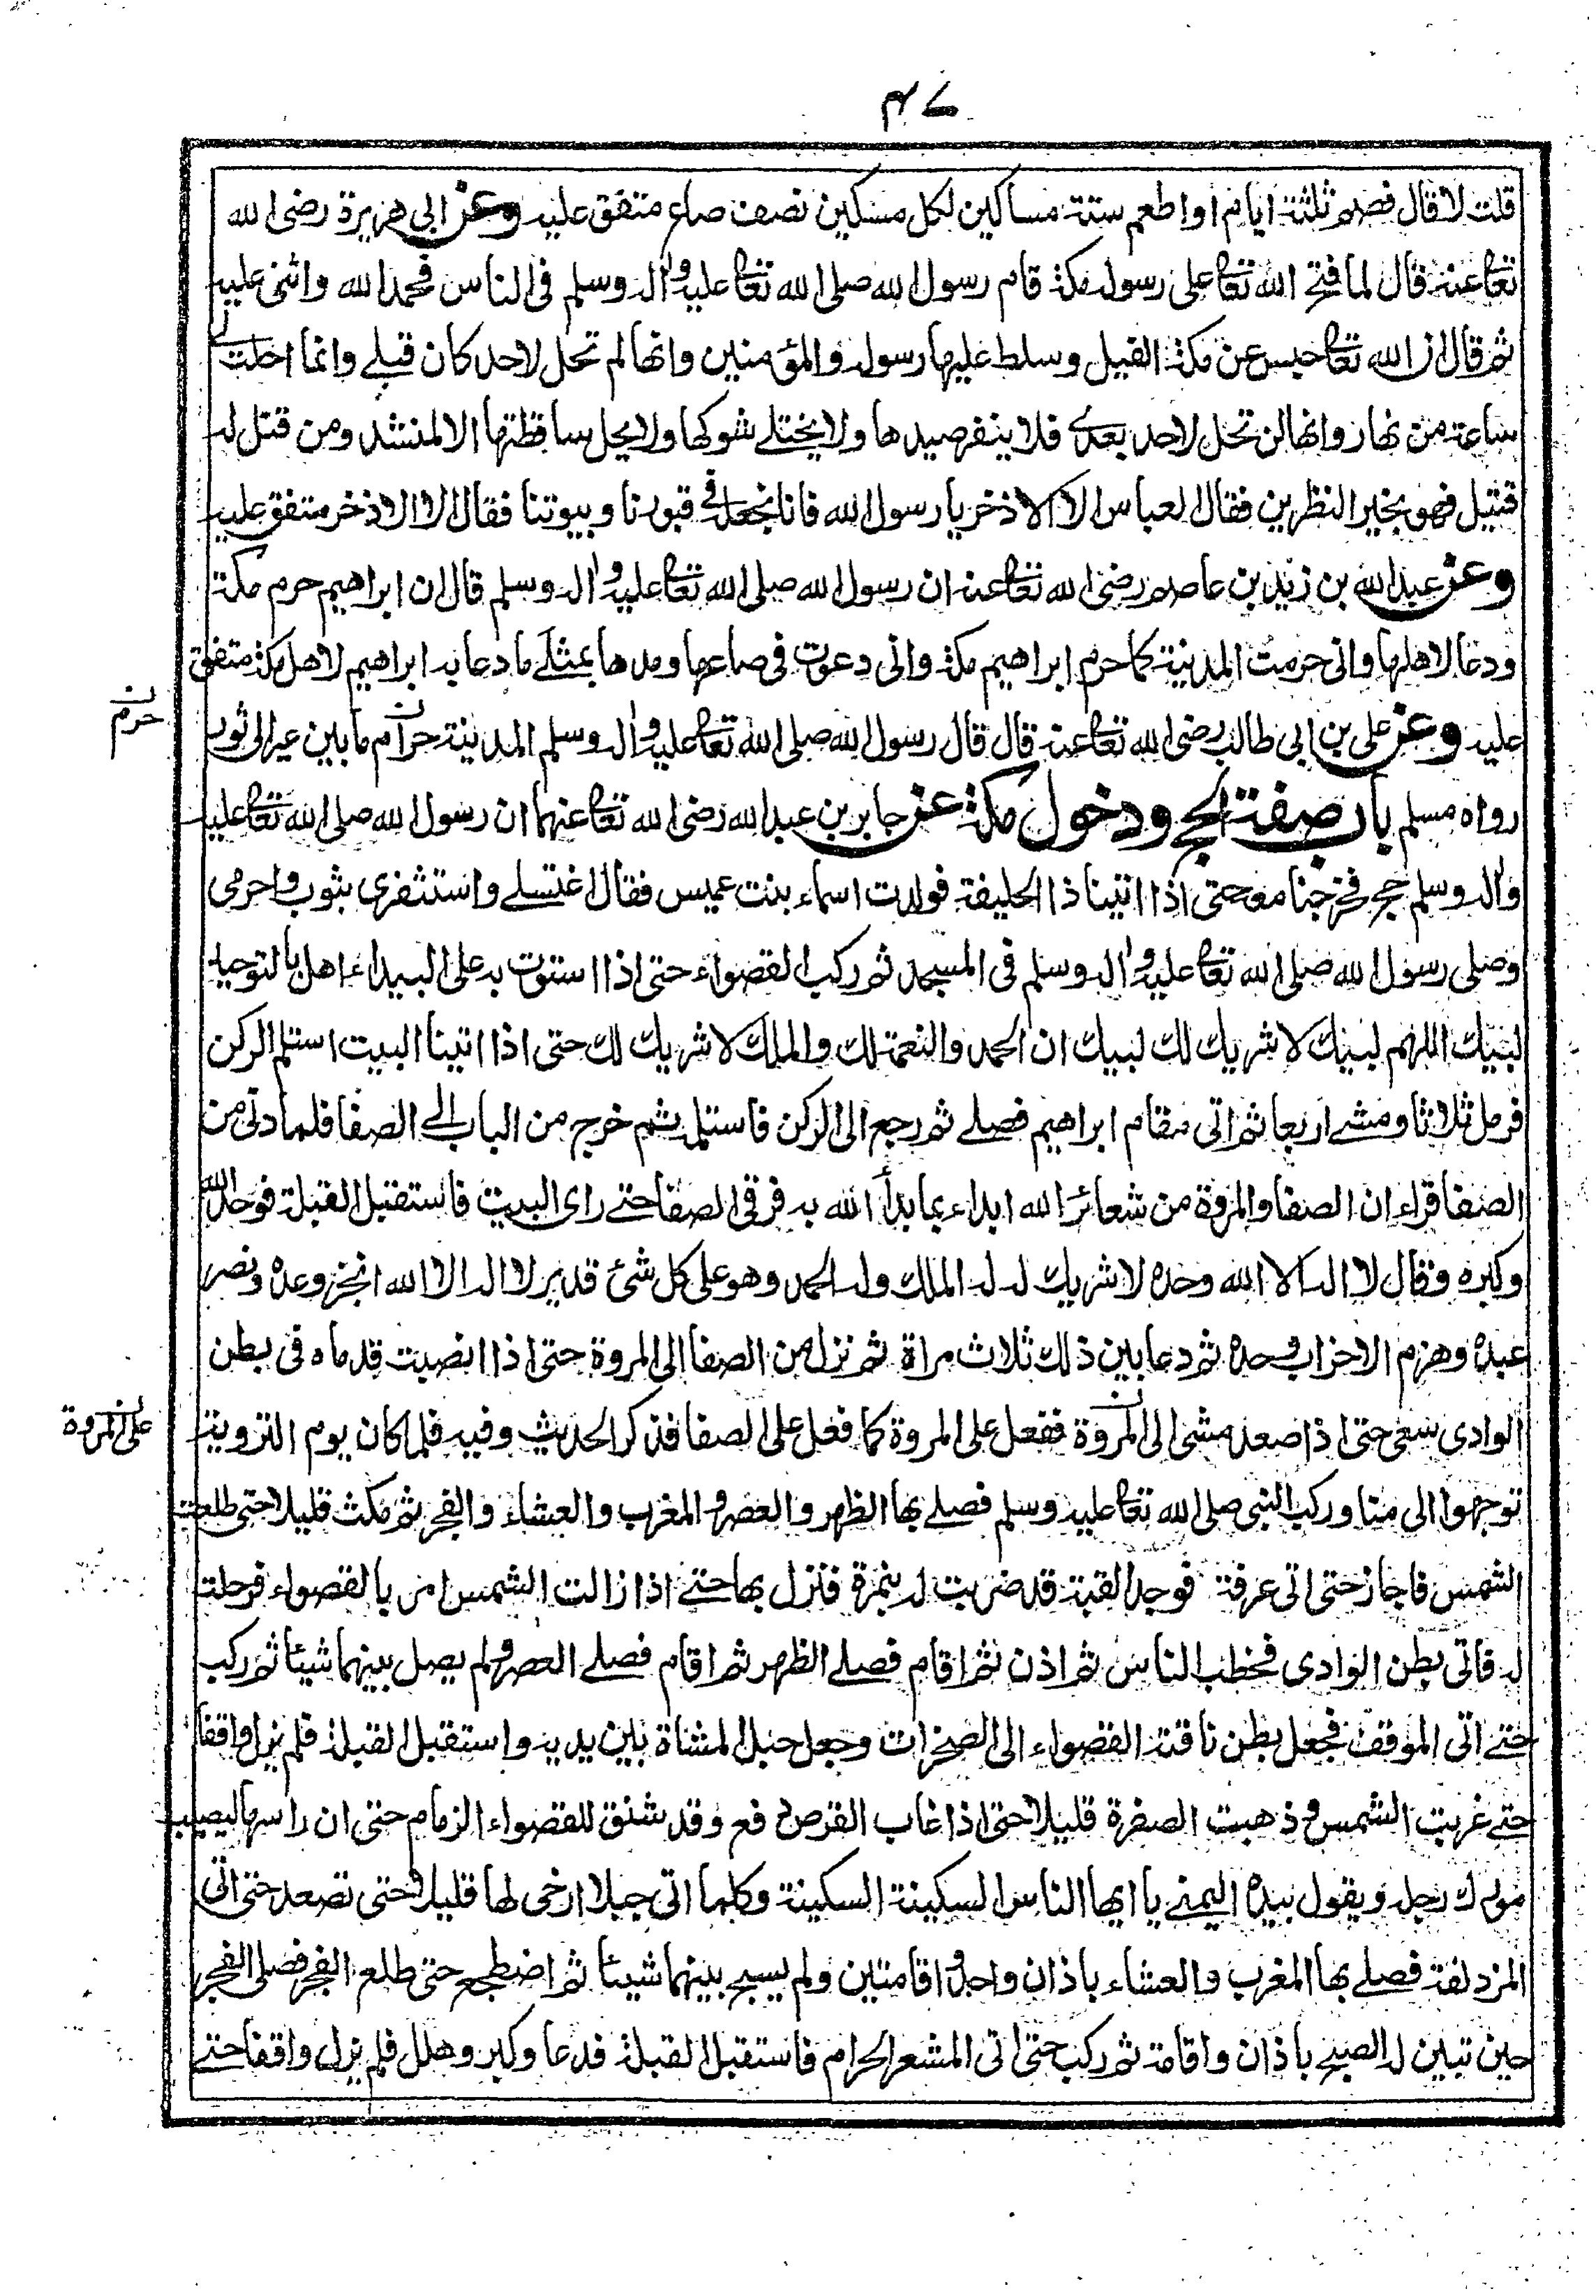 ٤٧
قلت لا قال فصم ثلثة ايام او اطعم ستة مساكين لكل مسكين نصف صاع متفق عليه وعن ابي هريرة رضى الله
تعا عنه قال لما فتح الله تعا على رسوله مكة قام رسول الله صلى الله تعا عليه واله وسلم فى الناس فحمد الله واثنى عليه
ثم قال ان الله تعا حبس عن مكة الفيل وسلط عليها رسوله والمؤمنين وانها لم تحل لاحد كان قبلے وانما احلت لے
ساعة من نهار وانها لن تحل لاحد بعدے فلا ينفر صيدها ولا يختلے شوكها ولا يحل ساقطتها الا لمنشد ومن قتل له
قتيل فهو بخير النظرين فقال العباس الا الاذخر يا رسول الله فانا نجعله فى قبورنا وبيوتنا فقال الا الاذخر متفق عليه
وعن عبد الله بن زيد بن عاصم رضى الله تعا عنه ان رسول الله صلى الله تعا عليه واله وسلم قال ان ابراهيم حرم مكة
ودعا لاهلها وانى حرمت المدينة كما حرم ابراهيم مكة وانى دعوت فى صاعها ومدها بمثلے ما دعا به ابراهيم لاهل مكة متفق
عليه وعن على بن ابي طالب رضى الله تعا عنه قال قال رسول الله صلى الله تعا عليه واله وسلم المدينة حرام ما بين عير الى ثور
حرم
رواه مسلم باب صفة الحج ودخول مكة عن جابر بن عبد الله رضى الله تعا عنهما ان رسول الله صلى الله تعا عليه
واله وسلم حج فخرجنا معه حتى اذا اتينا ذا الحليفة فولدت اسماء بنت عميس فقال اغتسلے واستثفرى بثوب واحرمى
وصلى رسول الله صلى الله تعا عليه واله وسلم فى المسجد ثم ركب القصواء حتى اذا استوت به على البيداء اهل بالتوحيد
لبيك اللهم لبيك لا شريك لك لبيك ان الحمد والنعمة لك والملك لا شريك لك حتى اذا اتينا البيت استلم الركن
فرمل ثلاثا ومشے اربعا ثم اتى مقام ابراهيم فصلے ثم رجع الى الركن فاستلمه ثم خرج من الباب الے الصفا فلما دنى من
الصفا قراء ان الصفا والمروة من شعائر الله ابداء بما بدأ الله به فرقى الصفا حتے راى البيت فاستقبل القبلة فوحد الله
وكبره وقال لا اله الا الله وحده لا شريك له له الملك وله الحمد وهو على كل شئ قدير لا اله الا الله انجز وعده ونصر
عبده وهزم الاحزاب وحده ثم دعا بين ذلك ثلاث مراة ثم نزل من الصفا الى المروة حتى اذا انصبت قدماه فى بطن
الوادى سعى حتى اذا صعد مشى الى المروة ففعل على المروة كما فعل على الصفا فذكر الحديث وفيه فلما كان يوم التروية
على المروة
توجهوا الى منا وركب النبى صلى الله تعا عليه وسلم فصلے بها الظهر والعصر والمغرب والعشاء والفجر ثم مكث قليلا حتى طلعت
الشمس فاجاز حتى اتى عرفة فوجد القبة قد ضربت له بنمرة فنزل بها حتے اذا زالت الشمس امر بالقصواء فرحلت
له فاتى بطن الوادى فخطب الناس ثم اذن ثم اقام فصلے الظهر ثم اقام فصلے العصر ولم يصل بينهما شيئا ثم ركب
حتے اتى الموقف فجعل بطن ناقته القصواء الى الصخرات وجعل حبل المشاة بين يديه واستقبل القبلة فلم يزل واقفا
حتے غربت الشمس وذهبت الصفرة قليلا حتى اذا غاب القرص دفع وقد شنق للقصواء الزمام حتى ان راسها ليصيب
مورك رجله ويقول بيده اليمنے يا ايها الناس السكينة السكينة وكلما اتى جبلا ارخى لها قليلا حتى تصعد حتى اتى
المزدلفة فصلے بها المغرب والعشاء باذان واحد واقامتين ولم يسبح بينهما شيئا ثم اضطجع حتى طلع الفجر فصلى الفجر
حين تبين له الصبح باذان واقامة ثم ركب حتى اتى المشعر الحرام فاستقبل القبلة فدعا وكبر وهلل فلم يزل واقفا حتے